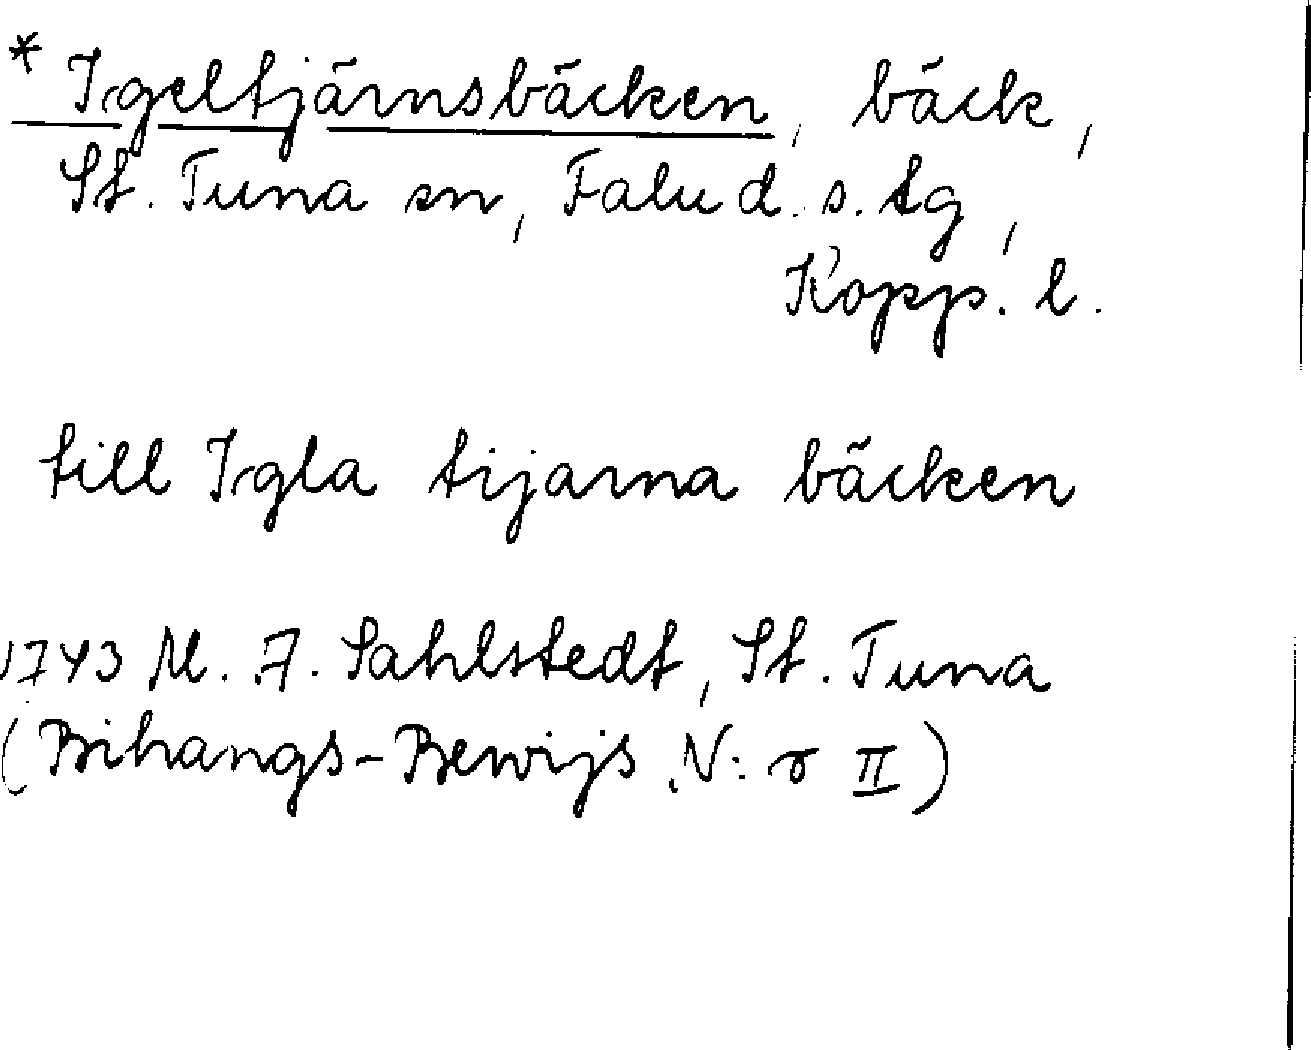 * Igeltjärnsbäcken, bäck,
St. Tuna sn, Falu d. s. tg,
Kopp. l.
till Igla tijarna bäcken
1743 M. A. Sahlstedt, St. Tuna
(Bihangs-Bewijs N:o II)